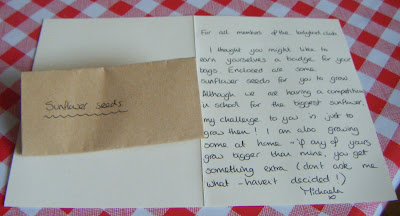 Sunflower seeds
For all members of the ladybird club
I thought you might like to
earn yourselves a badge for your
bags. Enclosed are some
sunflower seeds for you to grow.
Although we are having a competition
in school for the biggest sunflower,
my challenge to you is just to
grow them! I am also growing
some at home - if any of yours
grow bigger than mine, you get
something extra (don't ask me
what - haven't decided!)
Michaela
x